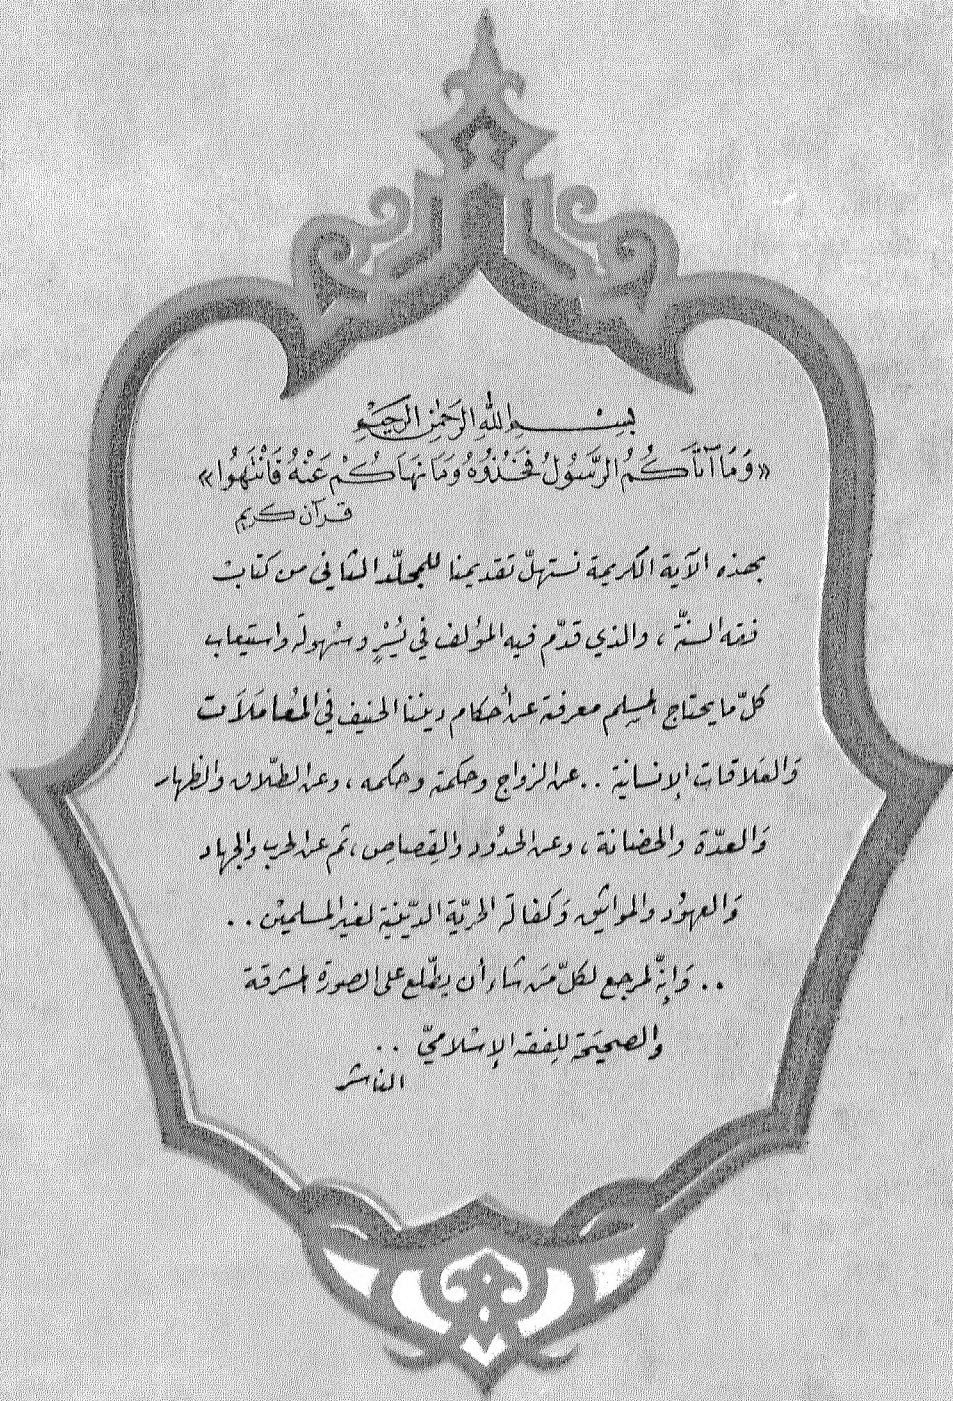 بسم الله الرحمن الرحيم
«وَمَا آتَاكُمُ الرَّسُولُ فَخُذُوهُ وَمَا نَهَاكُمْ عَنْهُ فَانْتَهُوا»
قرآن كريم
بهذه الآية الكريمة نستهلّ تقديمنا للمجلّد الثاني من كتاب
فقه السنّة ، والذي قدّم فيه المؤلف في يُسْرٍ وسُهولة واستيعاب
كلّ ما يحتاج المسِلم معرفة عن أحكام ديننا الحنيف في المُعامَلَات
وَالعَلاقات الإنسانية .. عن الزواج وحكمة وحكمه ، وعن الطلّاق والظهار
وَالعدّة والحضانة ، وعن الحدُود والقِصاصِ ، ثم عن الحرب والجهاد
وَالعهوُد والمواثيق وَكفالة الحريّة الديّنية لغير المسلميْن . .
. . وَإنّه لمرجع لكلّ مَن شاء أن يطّلع على الصورة المشرقة
والصحيَحة للِفقه الإسْلاميّ . .
الناشر